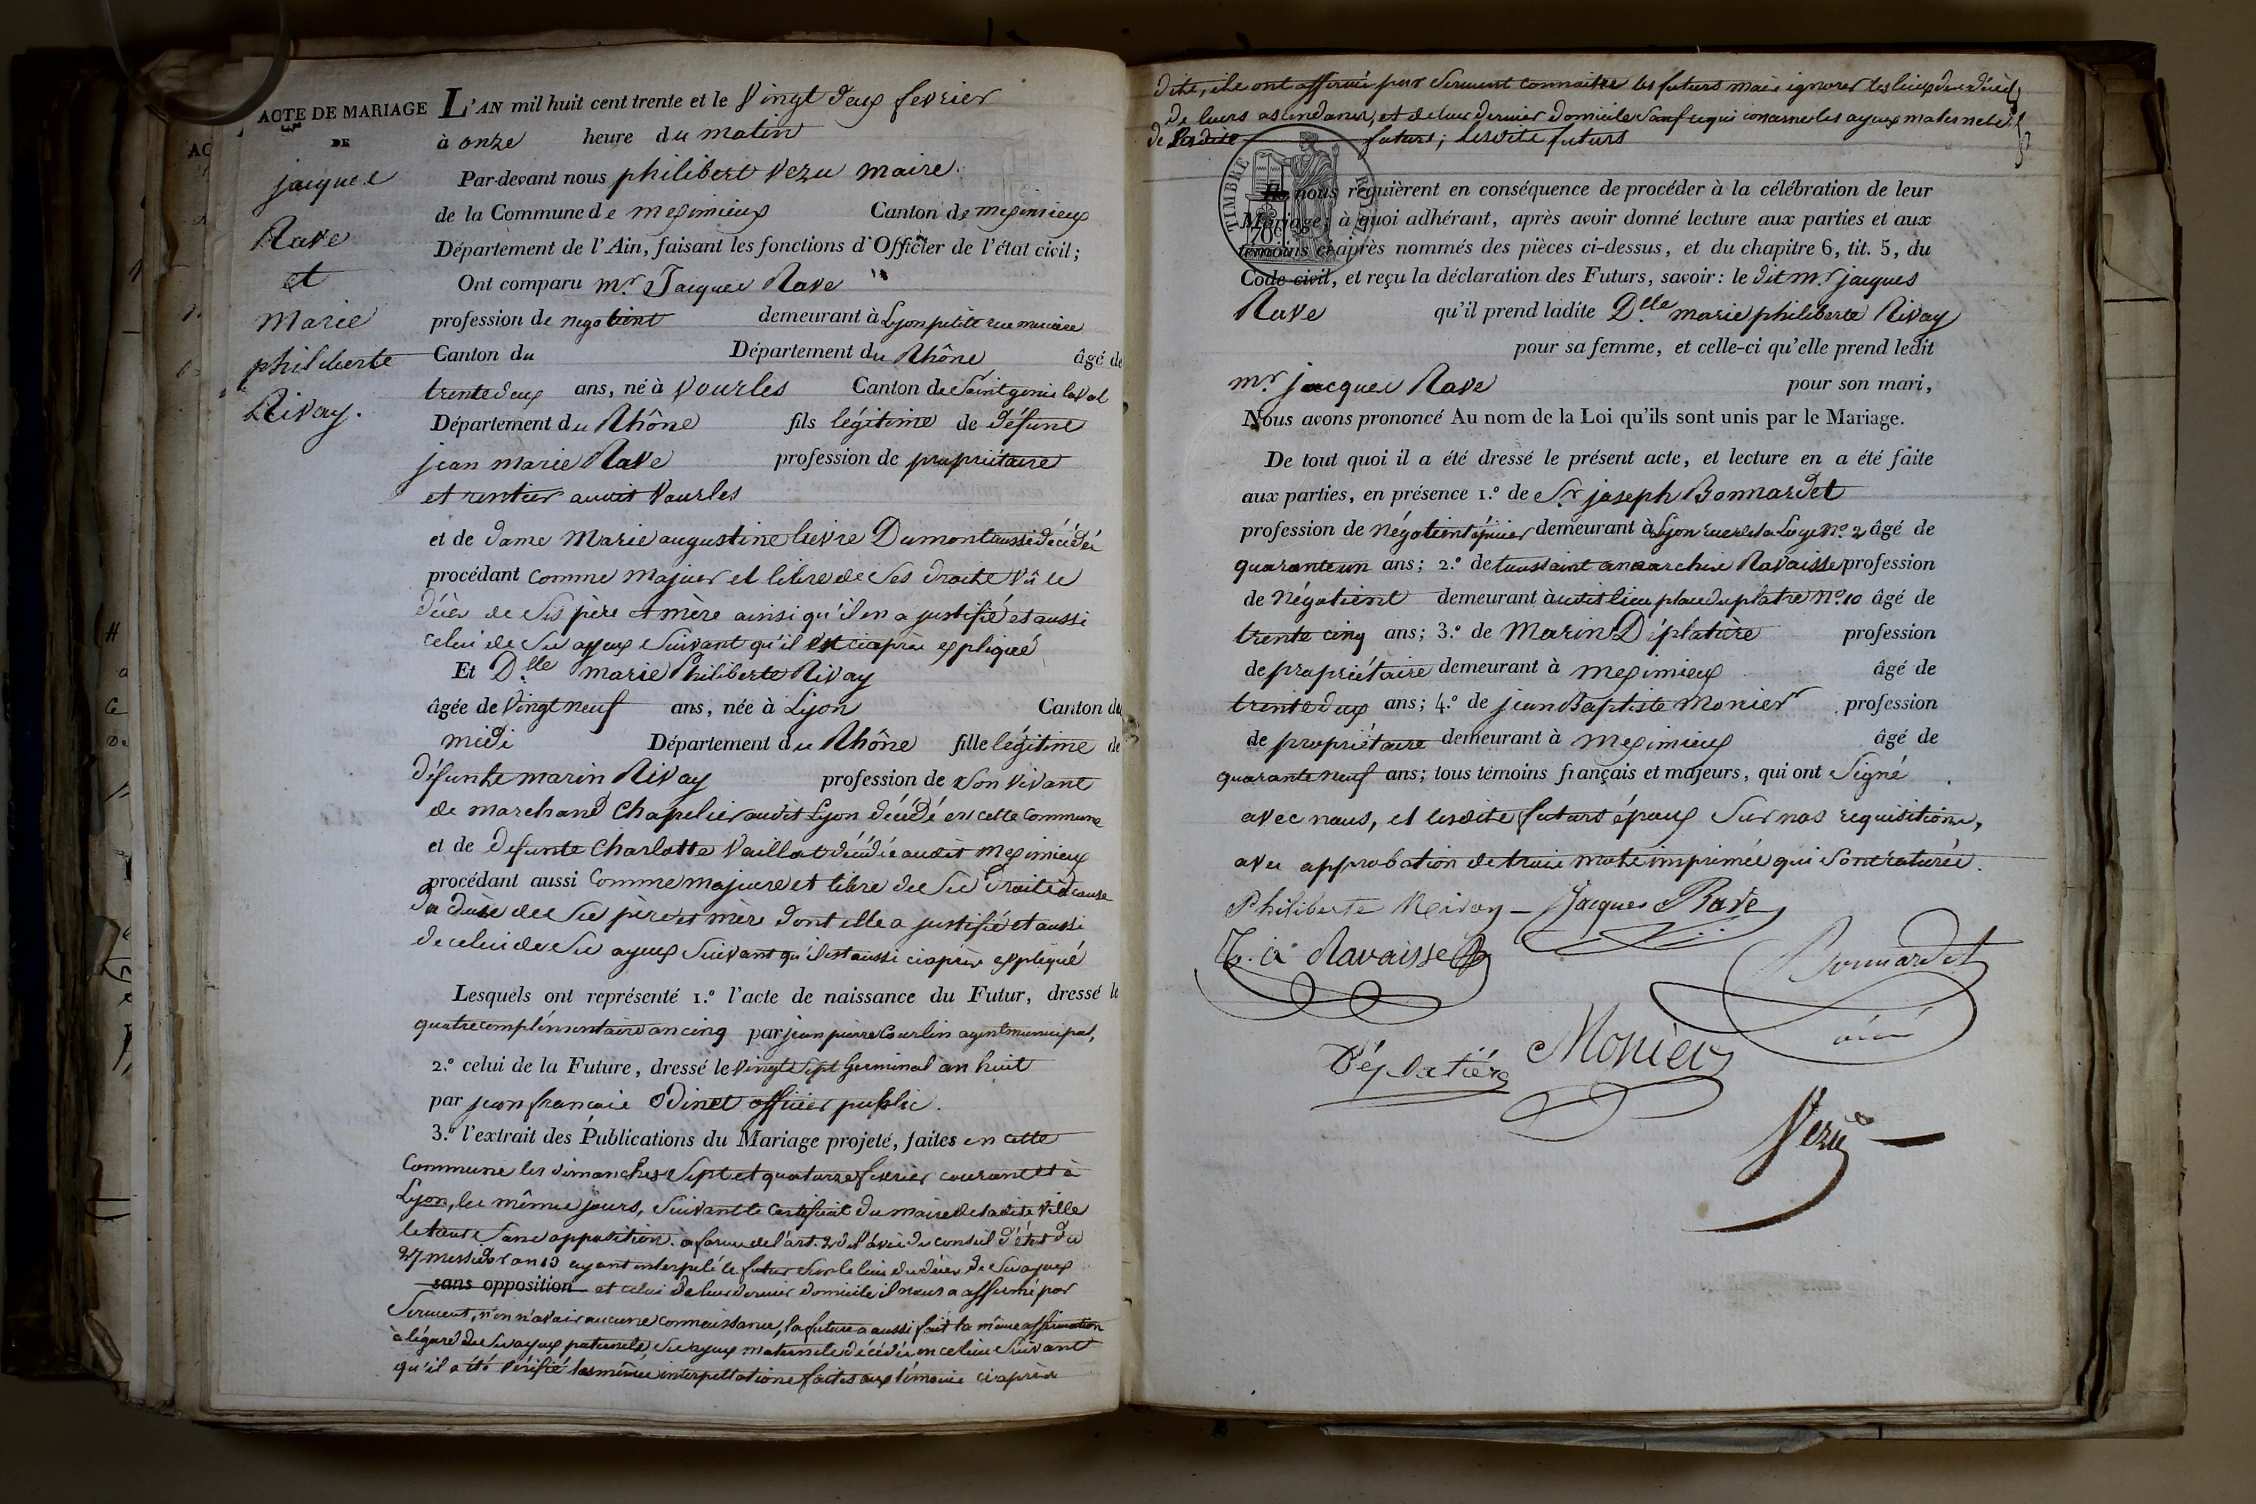 ACTE DE MARIAGE
DE
jacques
Rave
et
Marie
philiberte
Rivay.
L'AN mil huit cent trente et le Vingt deux fevrier
à onze heure du matin
Par-devant nous philibert Vezu maire
de la Commune de meximieux Canton de meximieux
Département de l'Ain, faisant les fonctions d'Officier de l'état civil;
Ont comparu mr. Jacques Rave
profession de négotient demeurant à Lyon petite rue merciere
Canton du Département du Rhône âgé de
trentedeux ans, né à Vourles Canton de Saint genis laval
Département du Rhône fils légitime de défunt
jean marie Rave profession de propriétaire
et rentier audit Vourles
et de dame Marie augustine lievre Dumont aussi décédée
procédant comme majeur et libre de ses droits vû le
décès de ses père et mère ainsi qu'il en a justifié et aussi
celui de ses ayeux suivant qu'il est ciaprès expliqué
Et Dlle marie Philiberte Rivay
âgée de Vingt neuf ans, née à Lyon Canton du
midi Département du Rhône fille légitime de
défunt marin Rivay profession de son vivant
de marchand Chapelier audit Lyon décédé en cette commune
et de défunte Charlotte Vaillat décédée audit meximieux
procédant aussi comme majeure et libre de ses droits à cause
du décès de ses père et mère dont elle a justifié et aussi
de celui de ses ayeux suivant qu'il est aussi ciaprès expliqué
Lesquels ont représenté 1.º l'acte de naissance du Futur, dressé le
quatre complémentaire an cinq par jean pierre Courlin agent municipal,
2.º celui de la Future, dressé le vingt sept Germinal an huit
par jean francois Odinet officier public.
3.º l'extrait des Publications du Mariage projeté, faites en cette
Commune les dimanches Sept et quatorze fevrier courant et à
Lyon, les mêmes jours, suivant le certificat du maire de ladite Ville
le tout sans opposition. a forme de l'art. 2 de l'avis du conseil d'état du
27 messidor an 13 ayant interpelé le futur sur le lieu du décès de ses ayeux
sans opposition et celui de leur dernier domicile il nous a affirmé par
Serment, n'en n'avoir aucune connaissance, la future a aussi fait la même affirmation
à l'égard de ses ayeux paternels, ses ayeux maternels décédés en ce lieu suivant
qu'il a été vérifié les mêmes interpellations faites aux témoins ciaprès
dits, ils ont affirmé par serment connaitre les futurs mais ignorer les lieux des décès
de leurs ascendans, et de leur dernier domicile sauf ce qui concerne les ayeux maternels
de ladite future; lesdits futurs
TIMBRE ROYAL
nous requièrent en conséquence de procéder à la célébration de leur
Mariage; à quoi adhérant, après avoir donné lecture aux parties et aux
témoins ciaprès nommés des pièces ci-dessus, et du chapitre 6, tit. 5, du
Code civil, et reçu la déclaration des Futurs, savoir: le dit mr. jacques
Rave qu'il prend ladite Dlle marie philiberte Rivay
pour sa femme, et celle-ci qu'elle prend ledit
mr. jacques Rave pour son mari,
Nous avons prononcé Au nom de la Loi qu'ils sont unis par le Mariage.
De tout quoi il a été dressé le présent acte, et lecture en a été faite
aux parties, en présence 1.º de Sr. joseph Bonnardet
profession de Négotient épicier demeurant à Lyon rue de la Loge No. 2 âgé de
quarante un ans; 2.º de toussaint anacarchis Ravaisse profession
de Négotient demeurant à audit lieu place du plâtre No. 10 âgé de
trente cinq ans; 3.º de Marin Déplatière profession
de propriétaire demeurant à meximieux âgé de
trente deux ans; 4.º de jean Baptiste Monier profession
de propriétaire demeurant à meximieux âgé de
quarante neuf ans; tous témoins français et majeurs, qui ont Signé
avec nous, et lesdits futurs époux sur nos requisitions,
avec approbation de trois mots imprimés qui sont raturés.
Philiberte Rivay Jacques Rave
T. a Ravaisse
Bonnardet
ainé
Déplatière Monier
Vezu